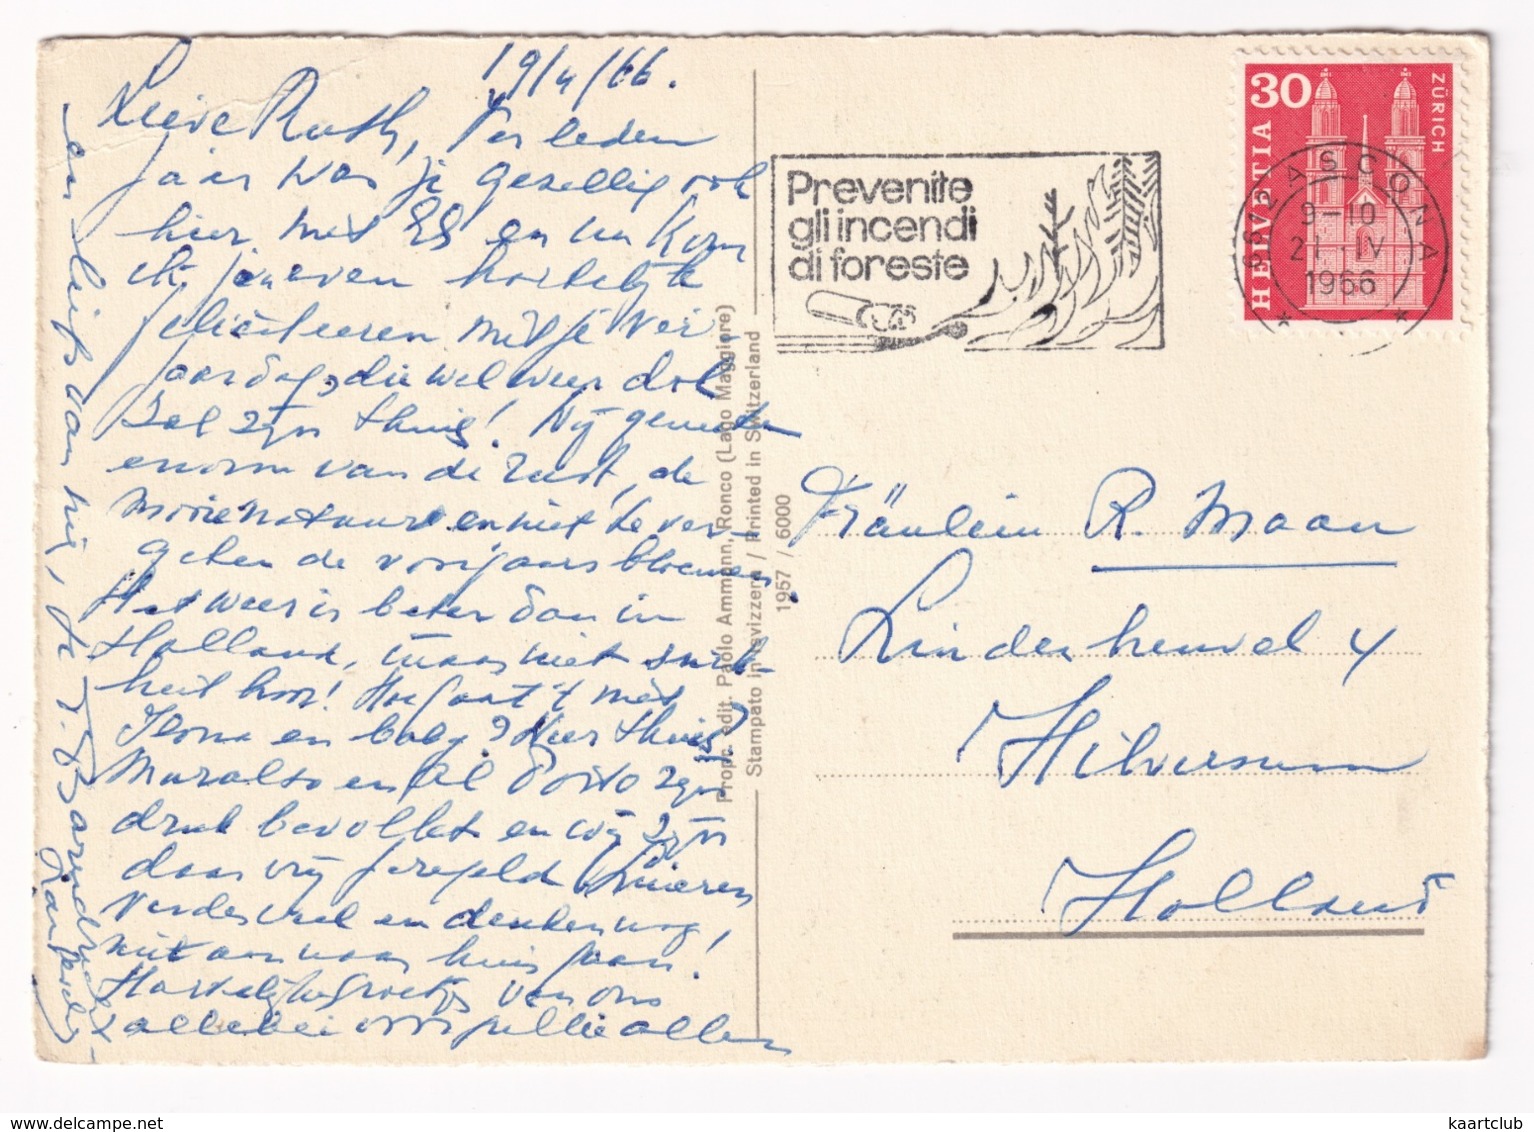 19/4/66.
Lieve Ruth, Verleden
jaar was je gezellig ook
hier met en nu kom
ik je even hartelijk
feliciteeren met je ver-
jaardag, die wel weer dol
zal zijn thuis! Wij genieten
enorm van de rust, de
mooie natuur en niet te ver-
geten de voorjaarsbloemen!
Het weer is beter dan in
Holland, maar niet
hoor! Hoe gaat 't met
Ilona en baby? Hier thuis?
Muralto en zijn
druk bevolkt en wij zijn
daar vrij geregeld.
veel en denken nog
niet aan naar huis gaan!
Hartelijke groetjes van ons
allebei voor jullie allen
van
Prevenite
gli incendi
di foreste
HELVETIA
30
ZÜRICH
6612 ASCONA
9-10
21.IV
1966
Propr. edit. Paolo Ammann, Ronco (Lago Maggiore)
Stampato in Isvizzera / Printed in Switzerland
1957 / 6000
Fräulein R. Maan
Lindenheuvel 4
Hilversum
Holland
www.delcampe.net
kaartclub